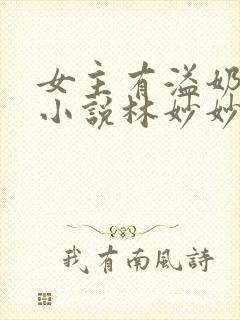 女主有溢奶
小说林妙妙
我有南風詩